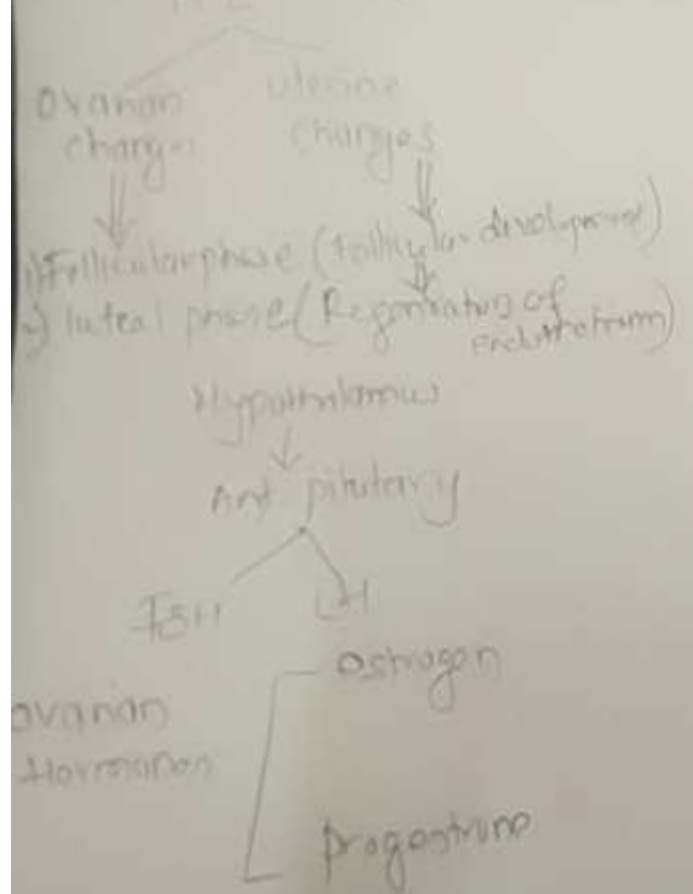 Ovarian
changes
uterine
changes
1) Follicular phase (Follicular development)
2) luteal phase (Regenration of
endometrium)
Hypothalamus
Ant pitutary
FSH
LH
ovarian
Hormones
Ostrogen
progestrone